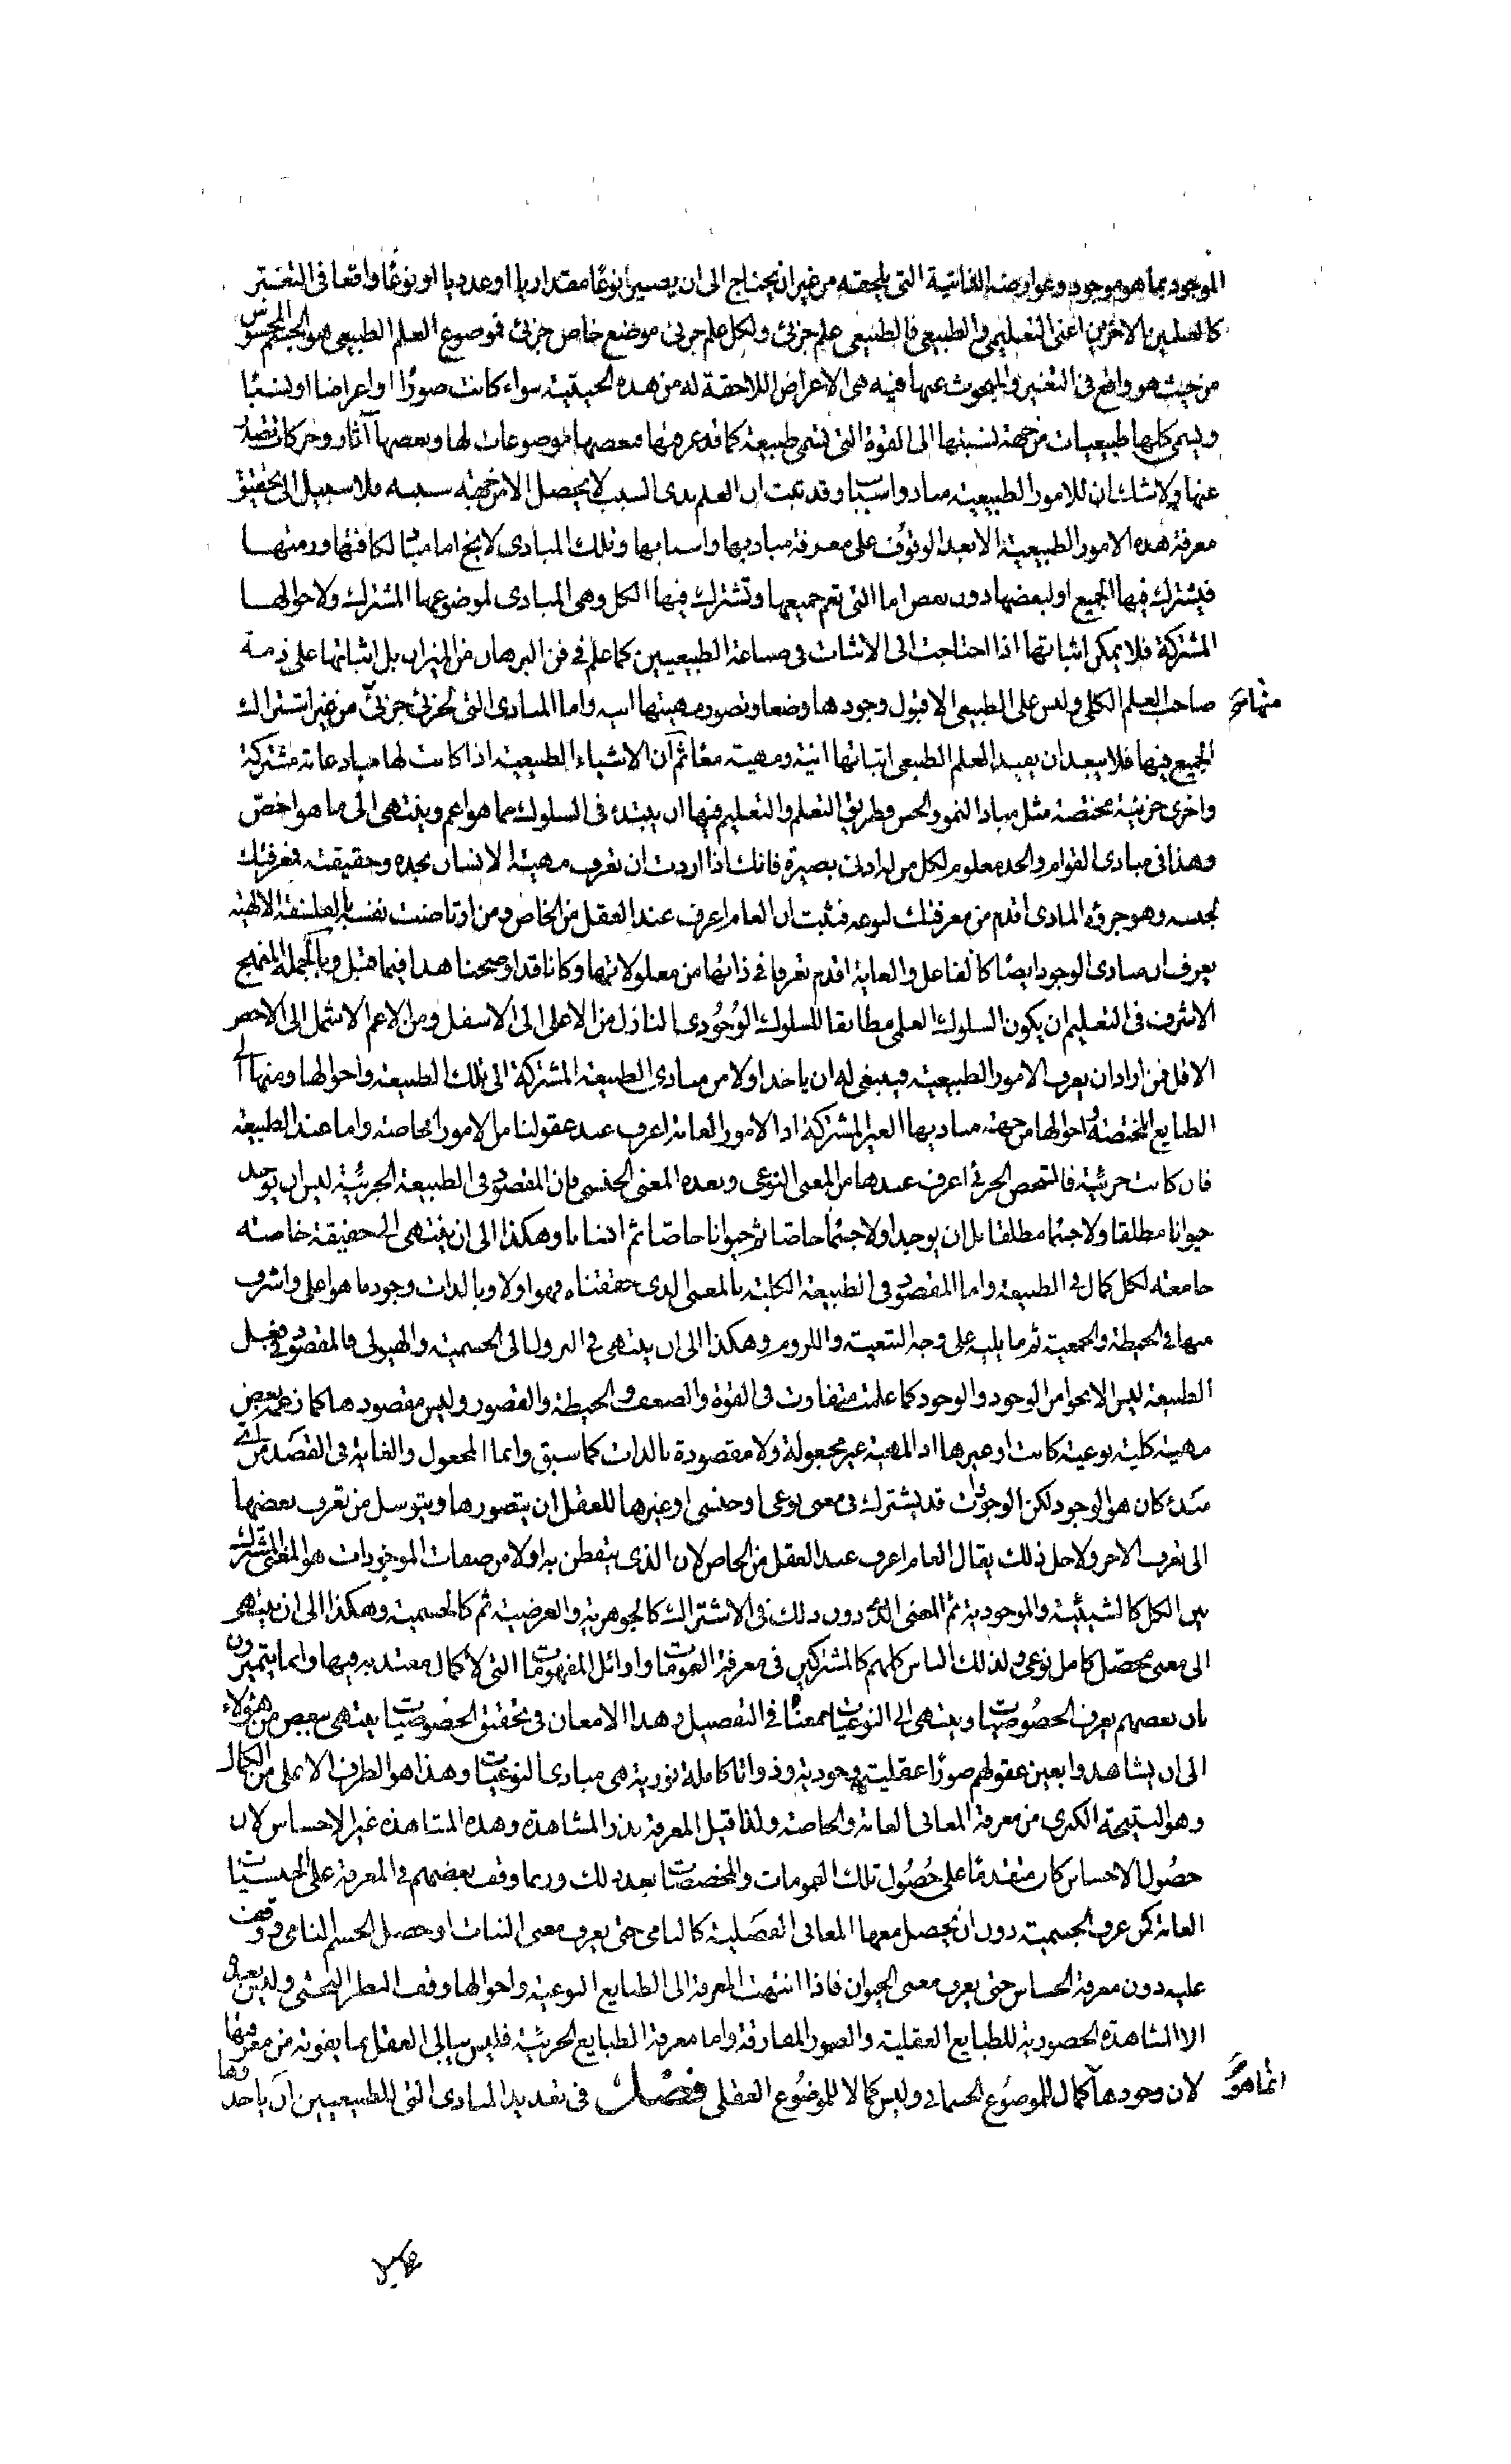 الموجود بما هو موجود وعوارضه الذاتية التي يلحقه من غير ان يحتاج الى ان يصير نوعًا مقداريا او عدديا او نوعًا واقعا في التغير
كالعلمين الاخرين اعنى التعليمي والطبيعي فالطبيعي علم جزئ ولكل علم جزئ موضع خاص جزئ فموضوع العلم الطبيعي هو الجسم المحسوس
من حيث هو واقع في التغير والمبحوث عنها فيه هى الاعراض اللاحقة له من هذه الحيثية سواء كانت صورًا او اعراضا او نسبًا
ويسمى كلها طبيعيات من جهة نسبتها الى القوة التي تسمى طبيعة كما قد عرفتها فبعضها موضوعات لها وبعضها آثار وحركات تصدر
عنها ولا شك ان للامور الطبيعية مباد واسبابا وقد ثبت ان العلم بذى السبب لا يحصل الا من جهة سببه فلا سبيل الى تحقيق
معرفة هذه الامور الطبيعية الا بعد الوقوف على معرفة مباديها واسبابها وتلك المبادى لا يخ اما مباد لكافتها
فيشترك فيها الجميع او لبعضها دون بعض اما التي تعم جميعها وتشترك فيها الكل وهى المبادى لموضوعها المشترك ولاحوالها
المشتركة فلا يمكن اثباتها اذا احتاجت الى الاثبات في صناعة الطبيعيين كما علم في فن البرهان من الميزان بل اثباتها على ذمة
صاحب العلم الكلى وليس على الطبيعى الا قبول وجودها وضعا وتصور مهيتها واما المبادى التي لجزئى جزئى من غير اشتراك
الجميع فيها فلا يبعد ان يفيد العلم الطبيعى اثباتها انية ومهية معًا ثم ان الاشياء الطبيعية اذا كانت لها مباد عامة مشتركة
واخرى جزئية مختصة مثل مباد النمو والحس وطريق التعلم والتعليم فيها ان يبتدء في السلوك مما هو اعم وينتهى الى ما هو اخص
وهذا في مبادى القوام والحد معلوم لكل من له ادنى بصيرة فانك اذا اردت ان تعرف مهية الانسان بحده وحقيقته فمعرفتك
بجنسه وهو جزؤه المادى اقدم من معرفتك لنوعه فثبت ان العام اعرف عند العقل من الخاص ومن ارتاضت نفسه بالفلسفة الالهية
يعرف ان مبادى الوجود ايضًا كالفاعل والغاية اقدم تعرفا في ذاتها من معلولاتها وكانا قد اوضحنا هذا فيما قبل وبالجملة المنهج
الاشرف في التعليم ان يكون السلوك العلمى مطابقا للسلوك الوُجُودى النازل من الاعلى الى الاسفل ومن الاعم الاشمل الى الاخص
الاقل فمن اراد ان يعرف الامور الطبيعية فينبغى له ان ياخذ اولا من مبادى الطبيعة المشتركة الى تلك الطبيعة واحوالها ومنها الى
الطبايع المختصة واحوالها من جهة مباديها الغير المشتركة اذ الامور العامة اعرف عند عقولنا من الامور الخاصة واما عند الطبيعة
فان كانت جزئية فالشخص الجزئى اعرف عندها من المعنى النوعى وبعده المعنى الجنسى فان المقصود في الطبيعة الجزئية ليس ان يوجد
حيوانا مطلقا ولا جسمًا مطلقا بل ان يوجد اولا جسمًا خاصًا ثم حيوانا خاصًا ثم انسانا وهكذا الى ان ينتهى الى حقيقة خاصة
جامعة لكل كمال في الطبيعة واما المقصود في الطبيعة الكلية بالمعنى الذى حققناه فهو اولا وبالذات وجود ما هو اعلى واشرف
منها في الحيطة والجمعية ثم ما يليه على وجه التبعية واللزوم وهكذا الى ان ينتهى في النزول الى الجسمية والهيولى فالمقصود في فعل
الطبيعة ليس الا نحوا من الوجود والوجود كما علمت متفاوت في القوة والضعف والحيطة والقصور وليس مقصودها كما زعمه بعض
مهية كلية نوعية كانت او غيرها اذ المهية غير مجعولة ولا مقصودة بالذات كما سبق وانما المجعول والغاية في القصد من اى
مبدء كان هو الوجود لكن الوجودات قد يشترك في معنى نوعى او جنسى او غيرها للعقل ان يتصورها ويتوسل من تعرف بعضها
الى تعرف الاخر ولاجل ذلك يقال العام اعرف عند العقل من الخاص لان الذى يتفطن به اولا من صفات الموجودات هو المعنى المشترك
بين الكل كالشيئية والموجودية ثم المعنى الذى دون ذلك في الاشتراك كالجوهرية والعرضية ثم كالجسمية وهكذا الى ان ينتهى
الى معنى محصّل كامل نوعى ولذلك الناس كلهم كالمشتركين في معرفة العمومات واوائل المفهومات التي لا كمال معتد به فيها وانما يتميزون
بان بعضهم يعرف الخصُوصيات وينتهى الى النوعيات ممعنًا في التفصيل وهذا الامعان في تحقيق الخصوصيات ينتهى ببعض من هؤلاء
الى ان يشاهدوا بعين عقولهم صورًا عقلية وجودية وذواتا كاملة نورية هى مبادى النوعيات وهذا هو الطرف الاعلى من الكمال
وهو النتيجة الكبرى من معرفة المعانى العامة والخاصة ولذا قيل المعرفة بذر المشاهدة وهذه المشاهدة غير الاحساس لان
حصُول الاحساس كان متقدمًا على حُصُول تلك العمومات والمخصصات بعد ذلك وربما وقف بعضهم في المعرفة على الجنسيات
العامة كمن عرف الجسمية دون ان يحصل معها المعانى الفصلية كالنامى حتى يعرف معنى النبات او حصل الجسم النامى ووقف
عليه دون معرفة الحساس حتى يعرف معنى الحيوان فاذا انتهت المعرفة الى الطبايع النوعية واحوالها وقف النظر البحثى وليس بعده
الا المشاهدة الحضورية للطبايع العقلية والصور المفارقة واما معرفة الطبايع الجزئية فليس يبالى العقل بما يفوته من معرفتها
لان وجودها كمال للموضوع الجسمانى وليس كمالا للموضُوع العقلى فصل في تعديد المبادى التي للطبيعيين ان ياخذوها
انما هو